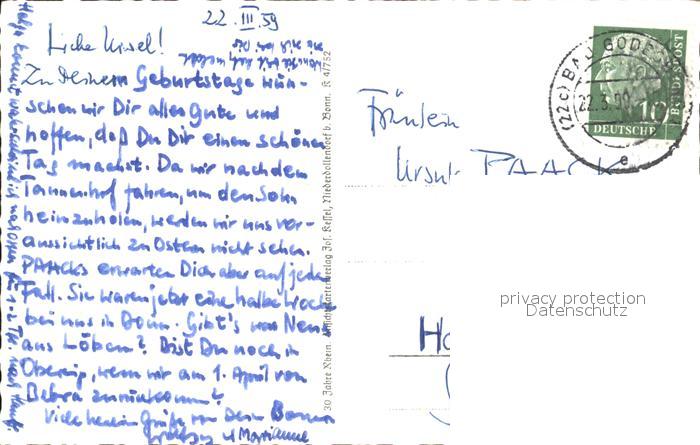 22. III. 59
Liebe Ursel!
Zu Deinem Geburtstage wün-
schen wir Dir alles Gute und
hoffen, daß Du Dir einen schönen
Tag machst. Da wir nach dem
Tannenhof fahren, um den Sohn
heimzuholen, werden wir uns vor-
aussichtlich zu Ostern nicht sehen.
PAACKs erwarten Dich aber auf jeden
Fall. Sie waren jetzt eine halbe Woche
bei uns in Bonn. Gibt's was Neues
aus Löben? Bist Du noch in
wenn wir am 1. April von
Bebra zurückkommen?
Viele herzliche Grüße von Deinen Bonnern
u Marianne
30 Jahre Rhein. Ansichtskartenverlag Jos. Keffel, Niederdollendorf b. Bonn. K 4/752
Fräulein
Ursula PAACK
Ho
(22c) BAD GODE
22.3.
e
10
DEUTSCHE
BUNDESPOST
privacy protection
Datenschutz